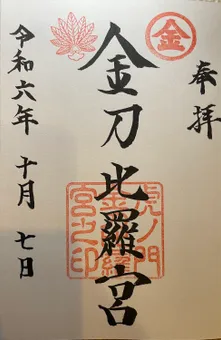 奉拝
金
金刀比羅宮
虎ノ門
金刀比羅
宮之印
令和六年十月七日